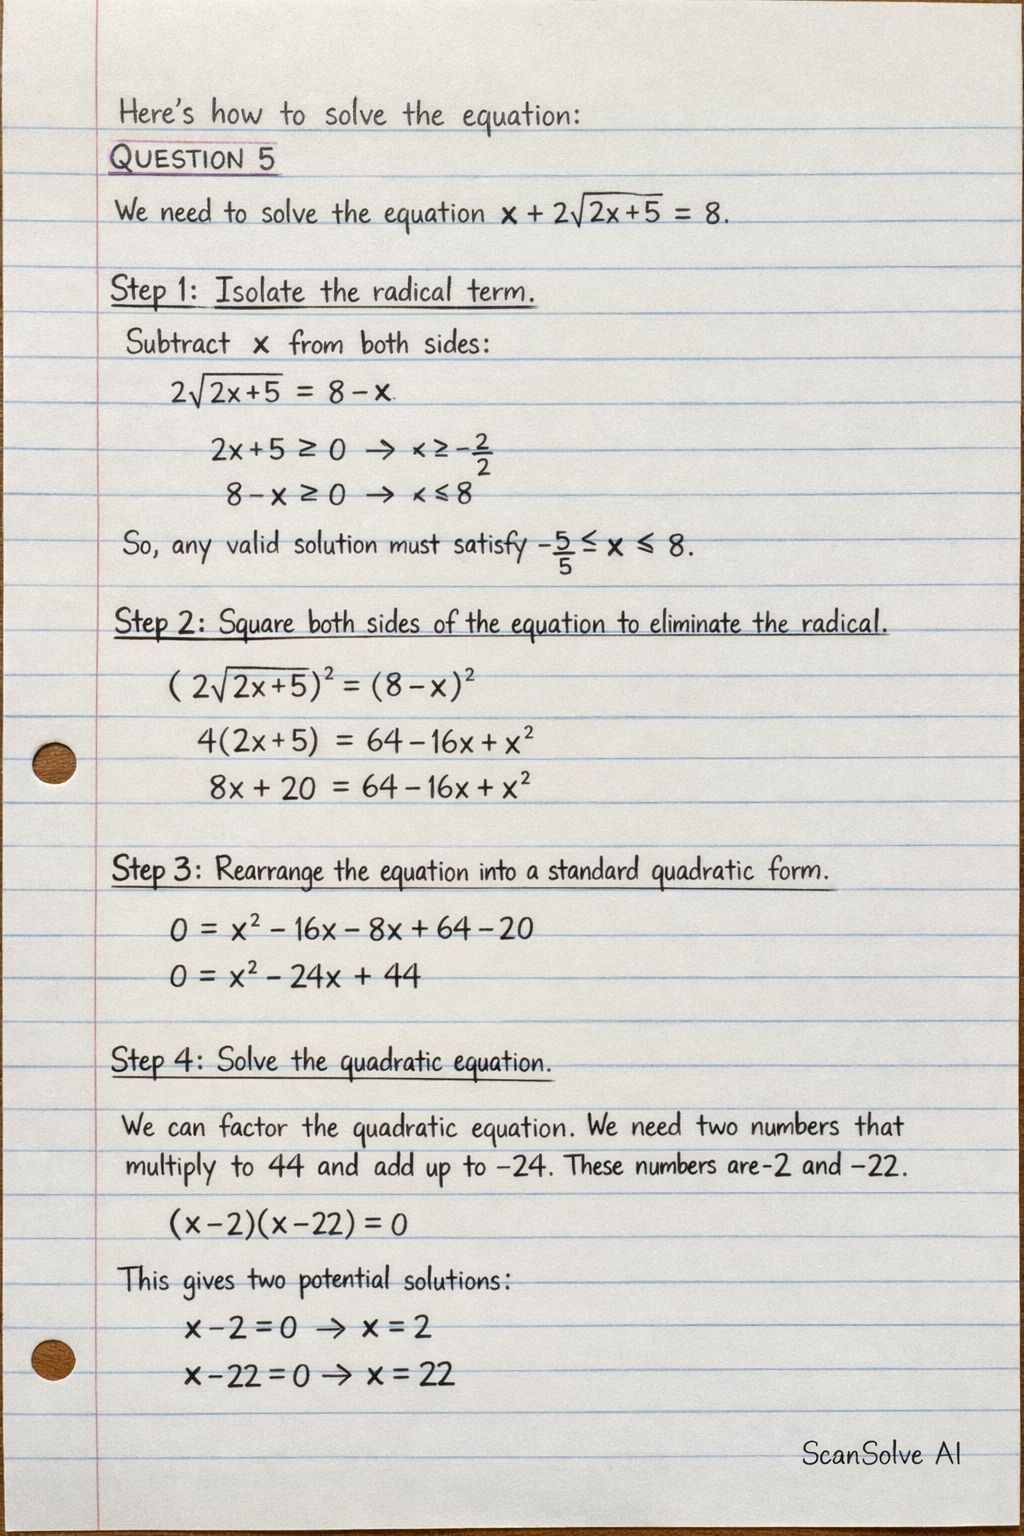 Here's how to solve the equation:
QUESTION 5
We need to solve the equation x + 2√(2x+5) = 8.
Step 1: Isolate the radical term.
Subtract x from both sides:
2√(2x+5) = 8 - x
2x+5 ≥ 0 → x ≥ -2/2
8-x ≥ 0 → x ≤ 8
So, any valid solution must satisfy -5/5 ≤ x ≤ 8.
Step 2: Square both sides of the equation to eliminate the radical.
(2√(2x+5))² = (8-x)²
4(2x+5) = 64-16x+x²
8x + 20 = 64-16x+x²
Step 3: Rearrange the equation into a standard quadratic form.
0 = x² - 16x - 8x + 64 - 20
0 = x² - 24x + 44
Step 4: Solve the quadratic equation.
We can factor the quadratic equation. We need two numbers that
multiply to 44 and add up to -24. These numbers are -2 and -22.
(x-2)(x-22) = 0
This gives two potential solutions:
x-2=0 → x=2
x-22=0 → x=22
ScanSolve AI